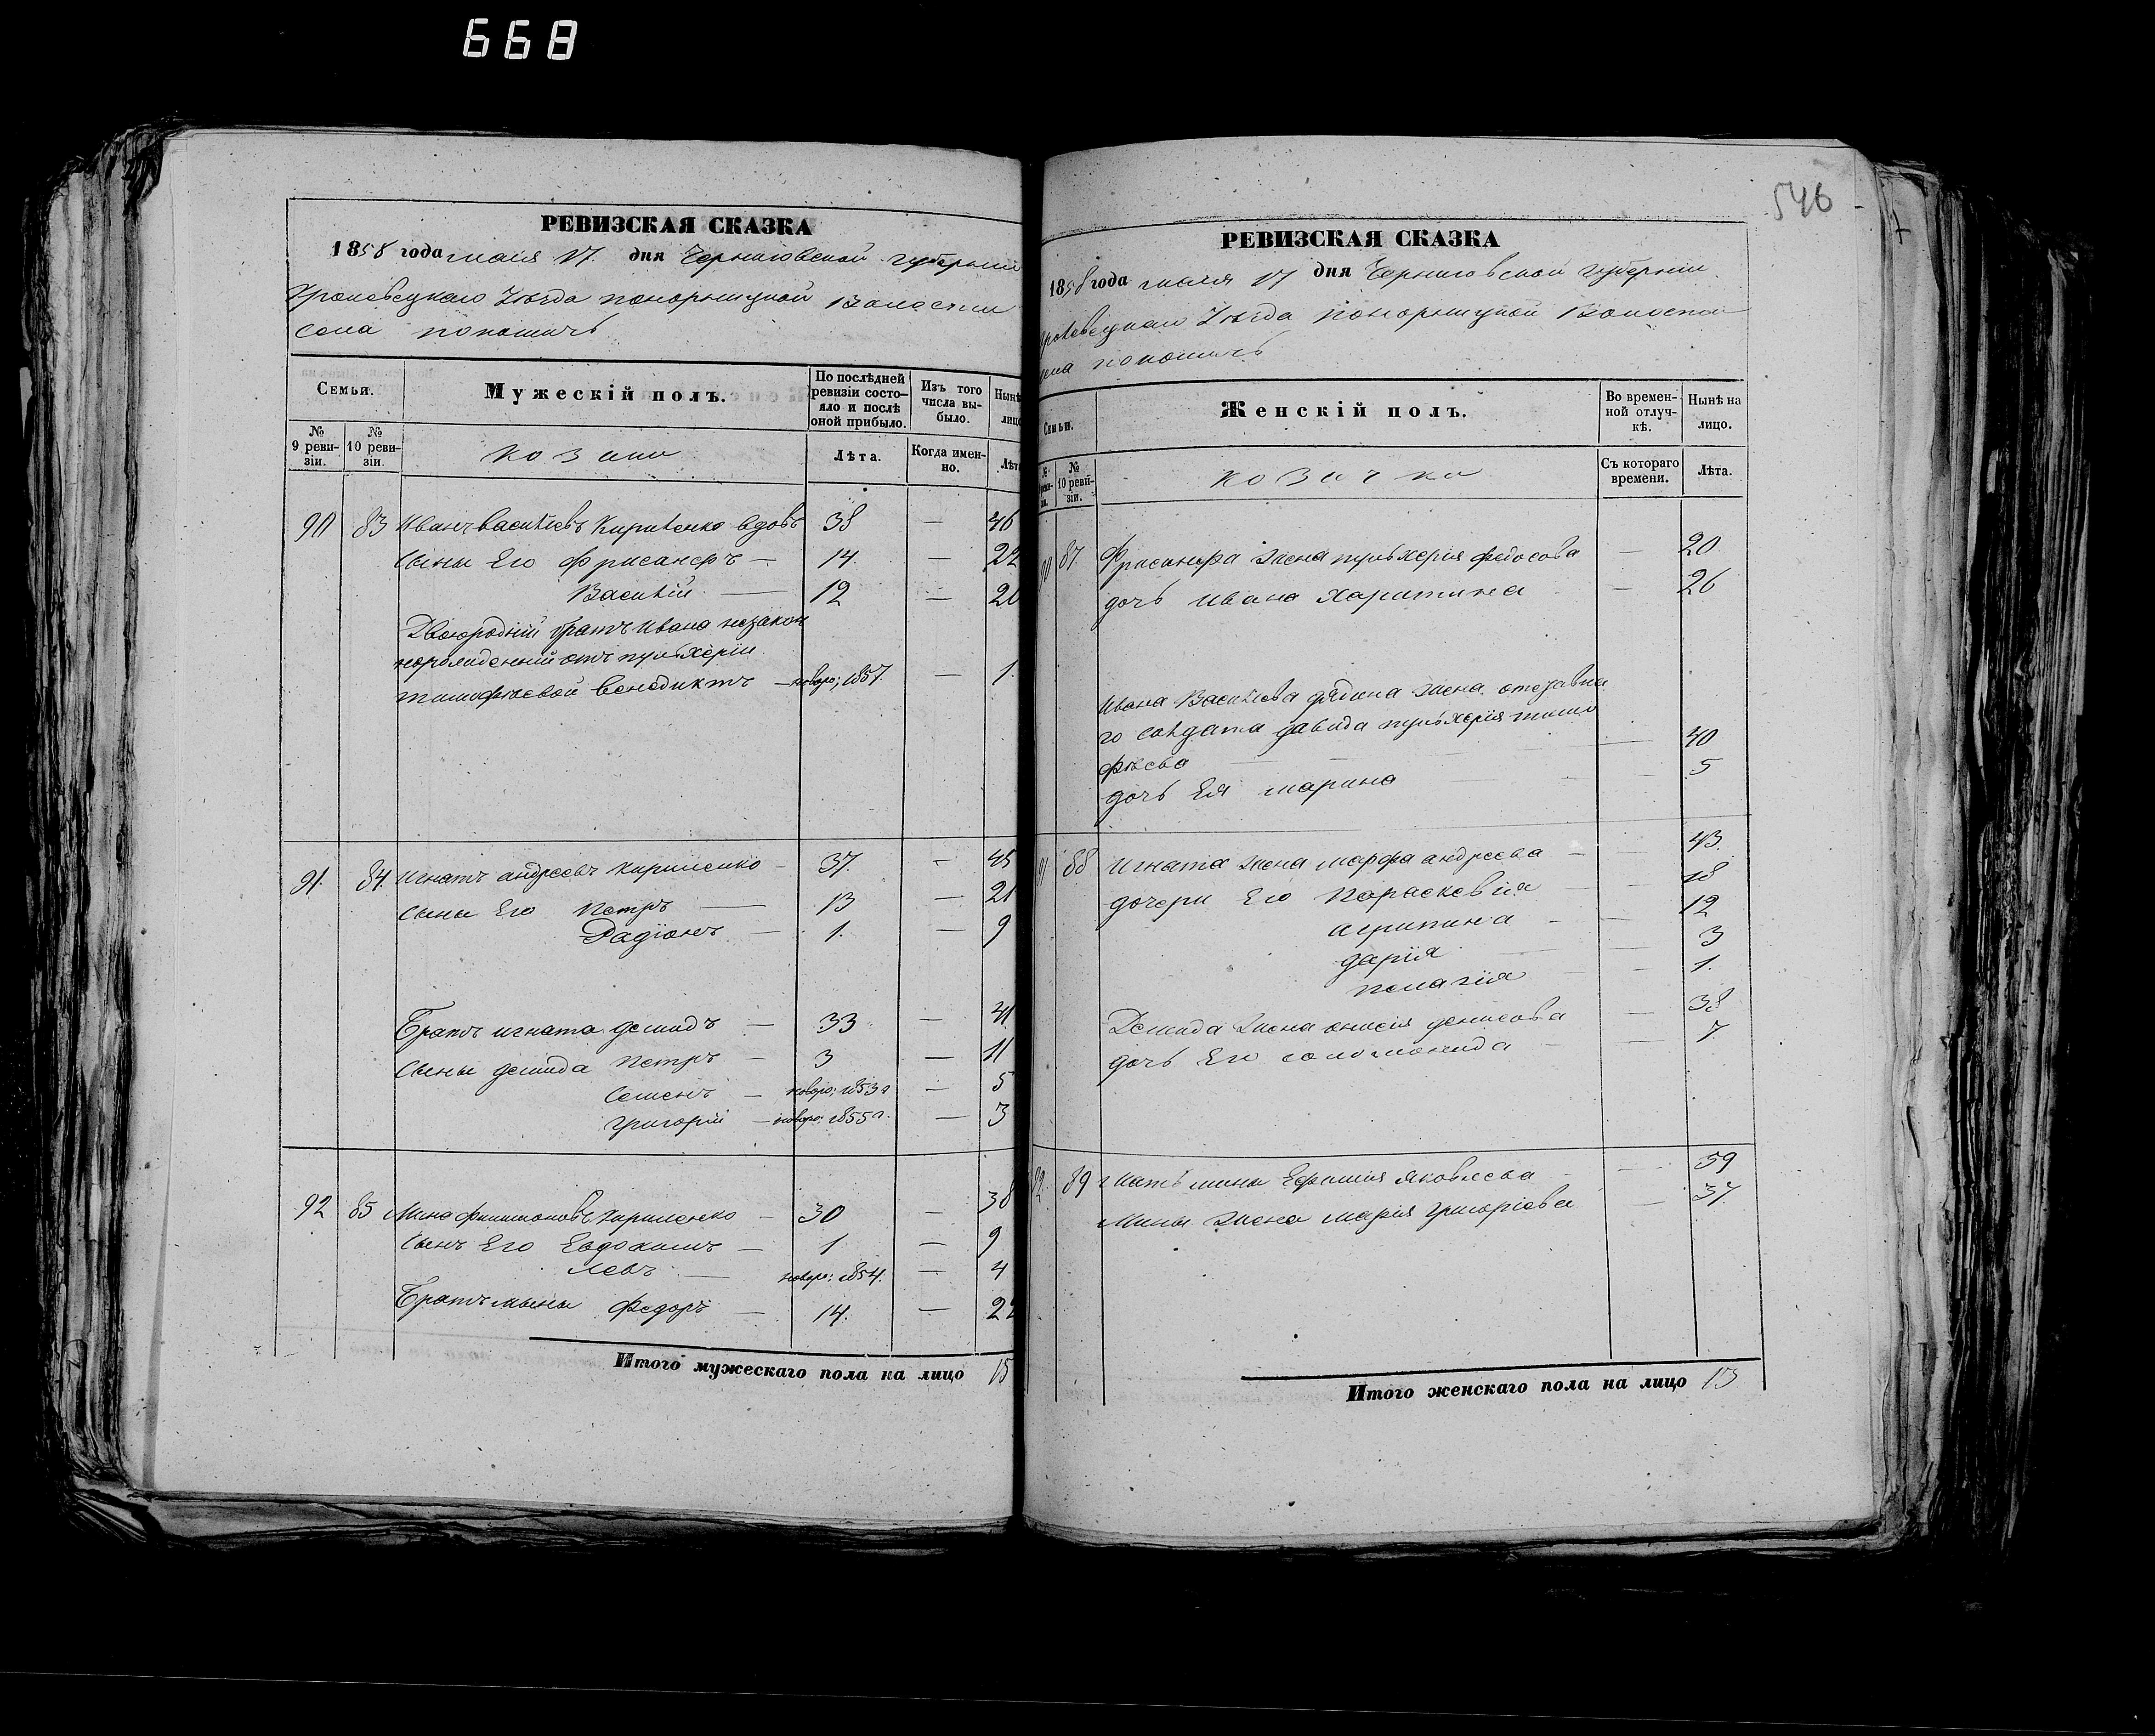 668
546
7
РЕВИЗСКАЯ СКАЗКА
1858 года маія 17. дня Черниговской губерніи
Кролевецкаго Уѣзда понорницкой Волости
села покошичъ
Семьи.
№ 9 реви-зіи.
№ 10 реви-зіи.
Мужескій полъ.
По послѣдней ревизіи состо-яло и послѣ оной прибыло.
Изъ того числа вы-было.
Нынѣ лицо
козаки
Лѣта.
Когда имен-но.
Лѣта
90 83 Иванъ васильевъ Кириленко вдовъ 38 — 46
Сыны Его Фрисанфъ — 14. — 22
Василій — 12 — 20
Двоюродній братъ Ивана незакон
норожденній отъ пульхеріи
тимофѣевой венедиктъ — новоро; 1857. — 1.
91. 84. Игнатъ андреевъ кириленко — 37. — 45
Сыны Его Петръ — 13 — 21
Радіонъ — 1. — 9
Братъ игната демидъ — 33 — 41
Сыны демида Петръ — 3 — 11
Семенъ — новоро; 1853 г — 5
григорій — новоро; 1855 г. — 3
92 85 Мина филимоновъ кириленко — 30 — 38
Сынъ Его Евдокимъ — 1 — 9
левъ — новоро; 1854. — 4
Братъ мины Федоръ — 14. — 22
Итого мужескаго пола на лицо 15
РЕВИЗСКАЯ СКАЗКА
1858 года маія 17 дня Черниговской губерніи
кролевецкаго Уѣзда понорницкой Волости
села покошичъ
Семьи.
№ 10 реви-зіи.
Женскій полъ.
Во времен-ной отлуч-кѣ.
Нынѣ на лицо.
козачки
Съ котораго времени.
Лѣта.
90 87. Фрисанфа жена пульхерія федосова — 20
дочь ивана харитина — 26
Ивана Васильева дядина жена отставна
го солдата давида пульхерія тимо
фѣева — 40
дочь Ея марина — 5
91 88 Игната жена марфа андреева — 43.
дочери Его Параскевія — 18
агрипина — 12
дарія — 3
пелагія — 1.
Демида жена анисія денисова — 38
дочь Его соломонида — 7.
92 89 мать мины Ефимія яковлева — 59
Мины жена марія григоріева — 37
Итого женскаго пола на лицо 13